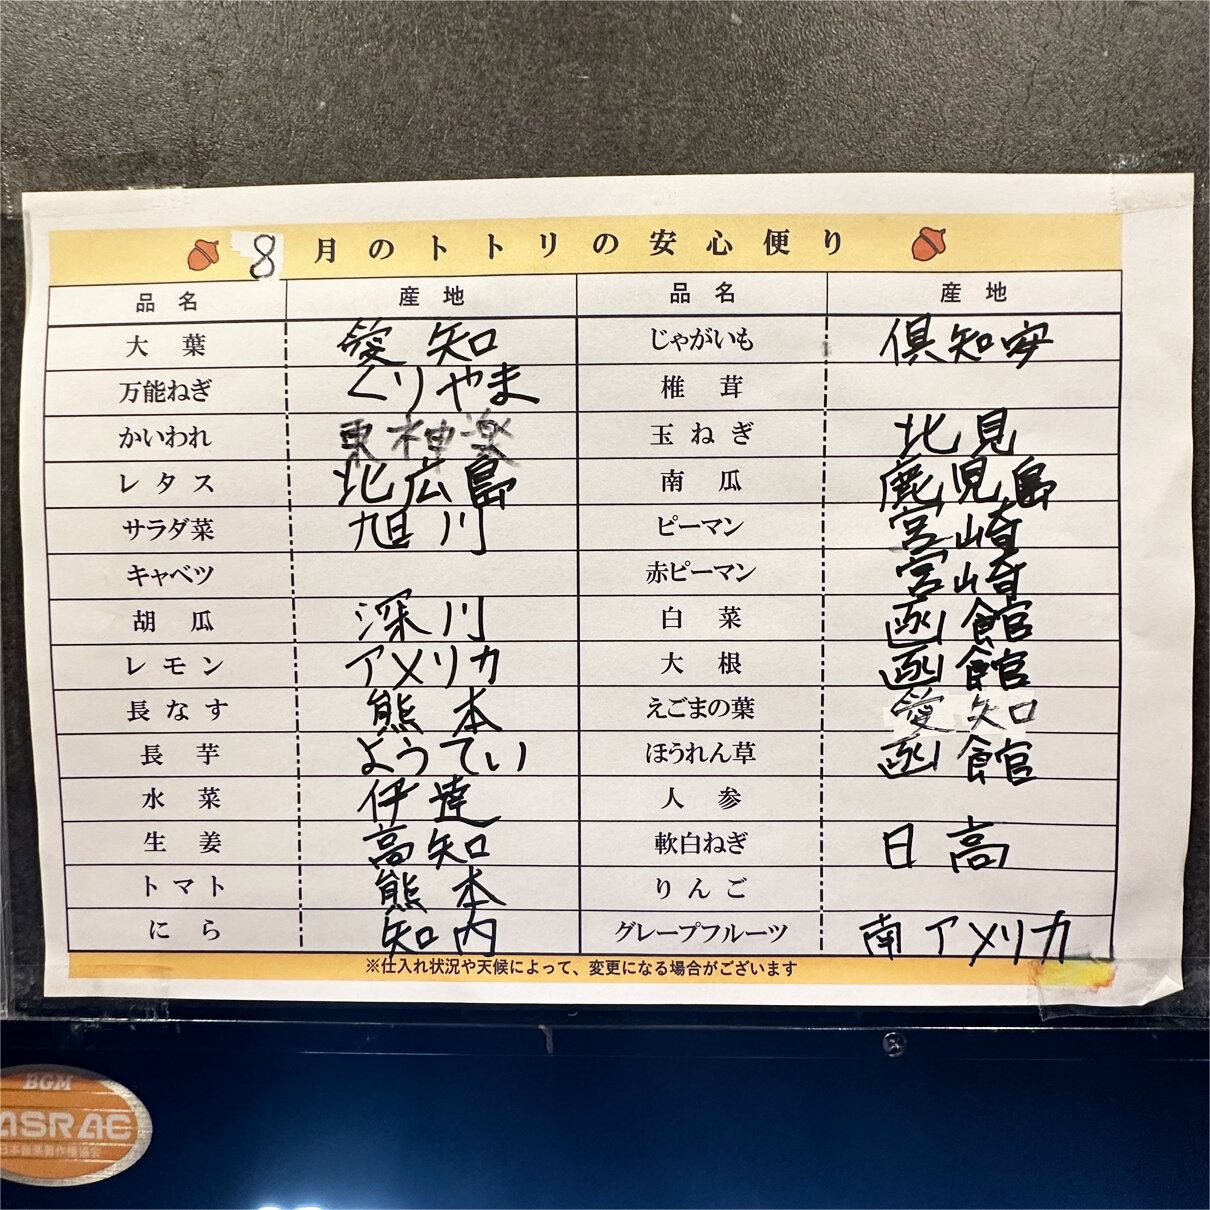 8月のトトリの安心便り
品名 産地 品名 産地
大葉 愛知 じゃがいも 倶知安
万能ねぎ くりやま 椎茸
かいわれ 東神楽 玉ねぎ 北見
レタス 北広島 南瓜 鹿児島
サラダ菜 旭川 ピーマン 宮崎
キャベツ 赤ピーマン 宮崎
胡瓜 深川 白菜 函館
レモン アメリカ 大根 函館
長なす 熊本 えごまの葉 愛知
長芋 ようてい ほうれん草 函館
水菜 伊達 人参
生姜 高知 軟白ねぎ 日高
トマト 熊本 りんご
にら 知内 グレープフルーツ 南アメリカ
※仕入れ状況や天候によって、変更になる場合がございます
BGM
JASRAC
日本音楽著作権協会